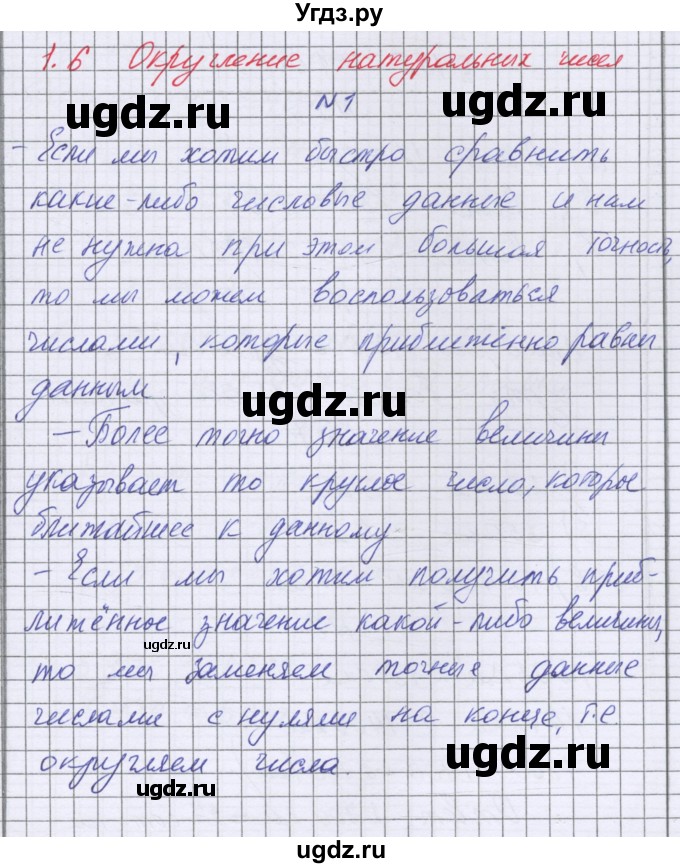 Угдз.ру
1.6 Округление натуральных чисел
ugdz.ru ugdz.ru
N 1
- Если мы хотим быстро сравнить
какие-либо числовые данные и нам
не нужна при этом большая точность,
то мы можем воспользоваться
числами, которые приближённо равны
данным
ugdz.ru
- Более точно значение величины
указывает то круглое число, которое
ближайшее к данному
- Если мы хотим получить приб-
лижённое значение какой-либо величины,
ugdz.ru
то мы заменяем точные данные
числами с нулями на конце, т.е.
округляем числа.
ugdz.ru ugdz.ru
ugdz.ru